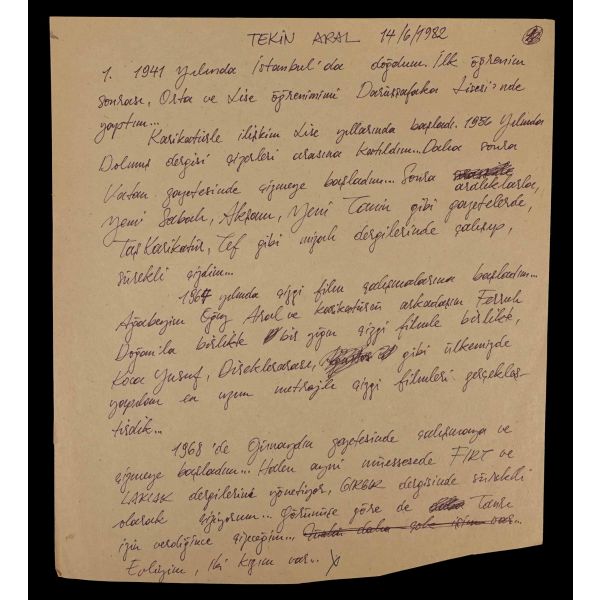 TEKİN ARAL 14/6/1982 1
1. 1941 yılında İstanbul'da doğdum. İlk öğrenim
sonrası, Orta ve Lise öğrenimimi Darüşşafaka Lisesi'nde
yaptım...
Karikatürle ilişkim Lise yıllarında başladı. 1956 yılında
Dolmuş dergisi çizerleri arasına katıldım... Daha sonra
Vatan gazetesinde çizmeye başladım... Sonra aralıklarla,
Yeni Sabah, Akşam, Yeni Tanin gibi gazetelerde,
Taş Karikatür, Tef gibi mizah dergilerinde çalışıp,
sürekli çizdim...
1964 yılında çizgi film çalışmalarına başladım...
Ağabeyim Oğuz Aral ve karikatürcü arkadaşım Ferruh
Doğan'la birlikte bir yığın çizgi filmle birlikte,
Koca Yusuf, Direklerarası, gibi ülkemizde
yapılan en uzun metrajlı çizgi filmleri gerçekleş-
tirdik...
1968'de Günaydın gazetesinde çalışmaya ve
çizmeye başladım... Halen aynı müessesede FIRT ve
LAKLAK dergilerini yönetiyor, GIRGIR dergisinde sürekli
olarak çiziyorum... Görünüşe göre de Tanrı
izin verdiğince çizeceğim... daha çok işim var...
Evliyim, iki kızım var...